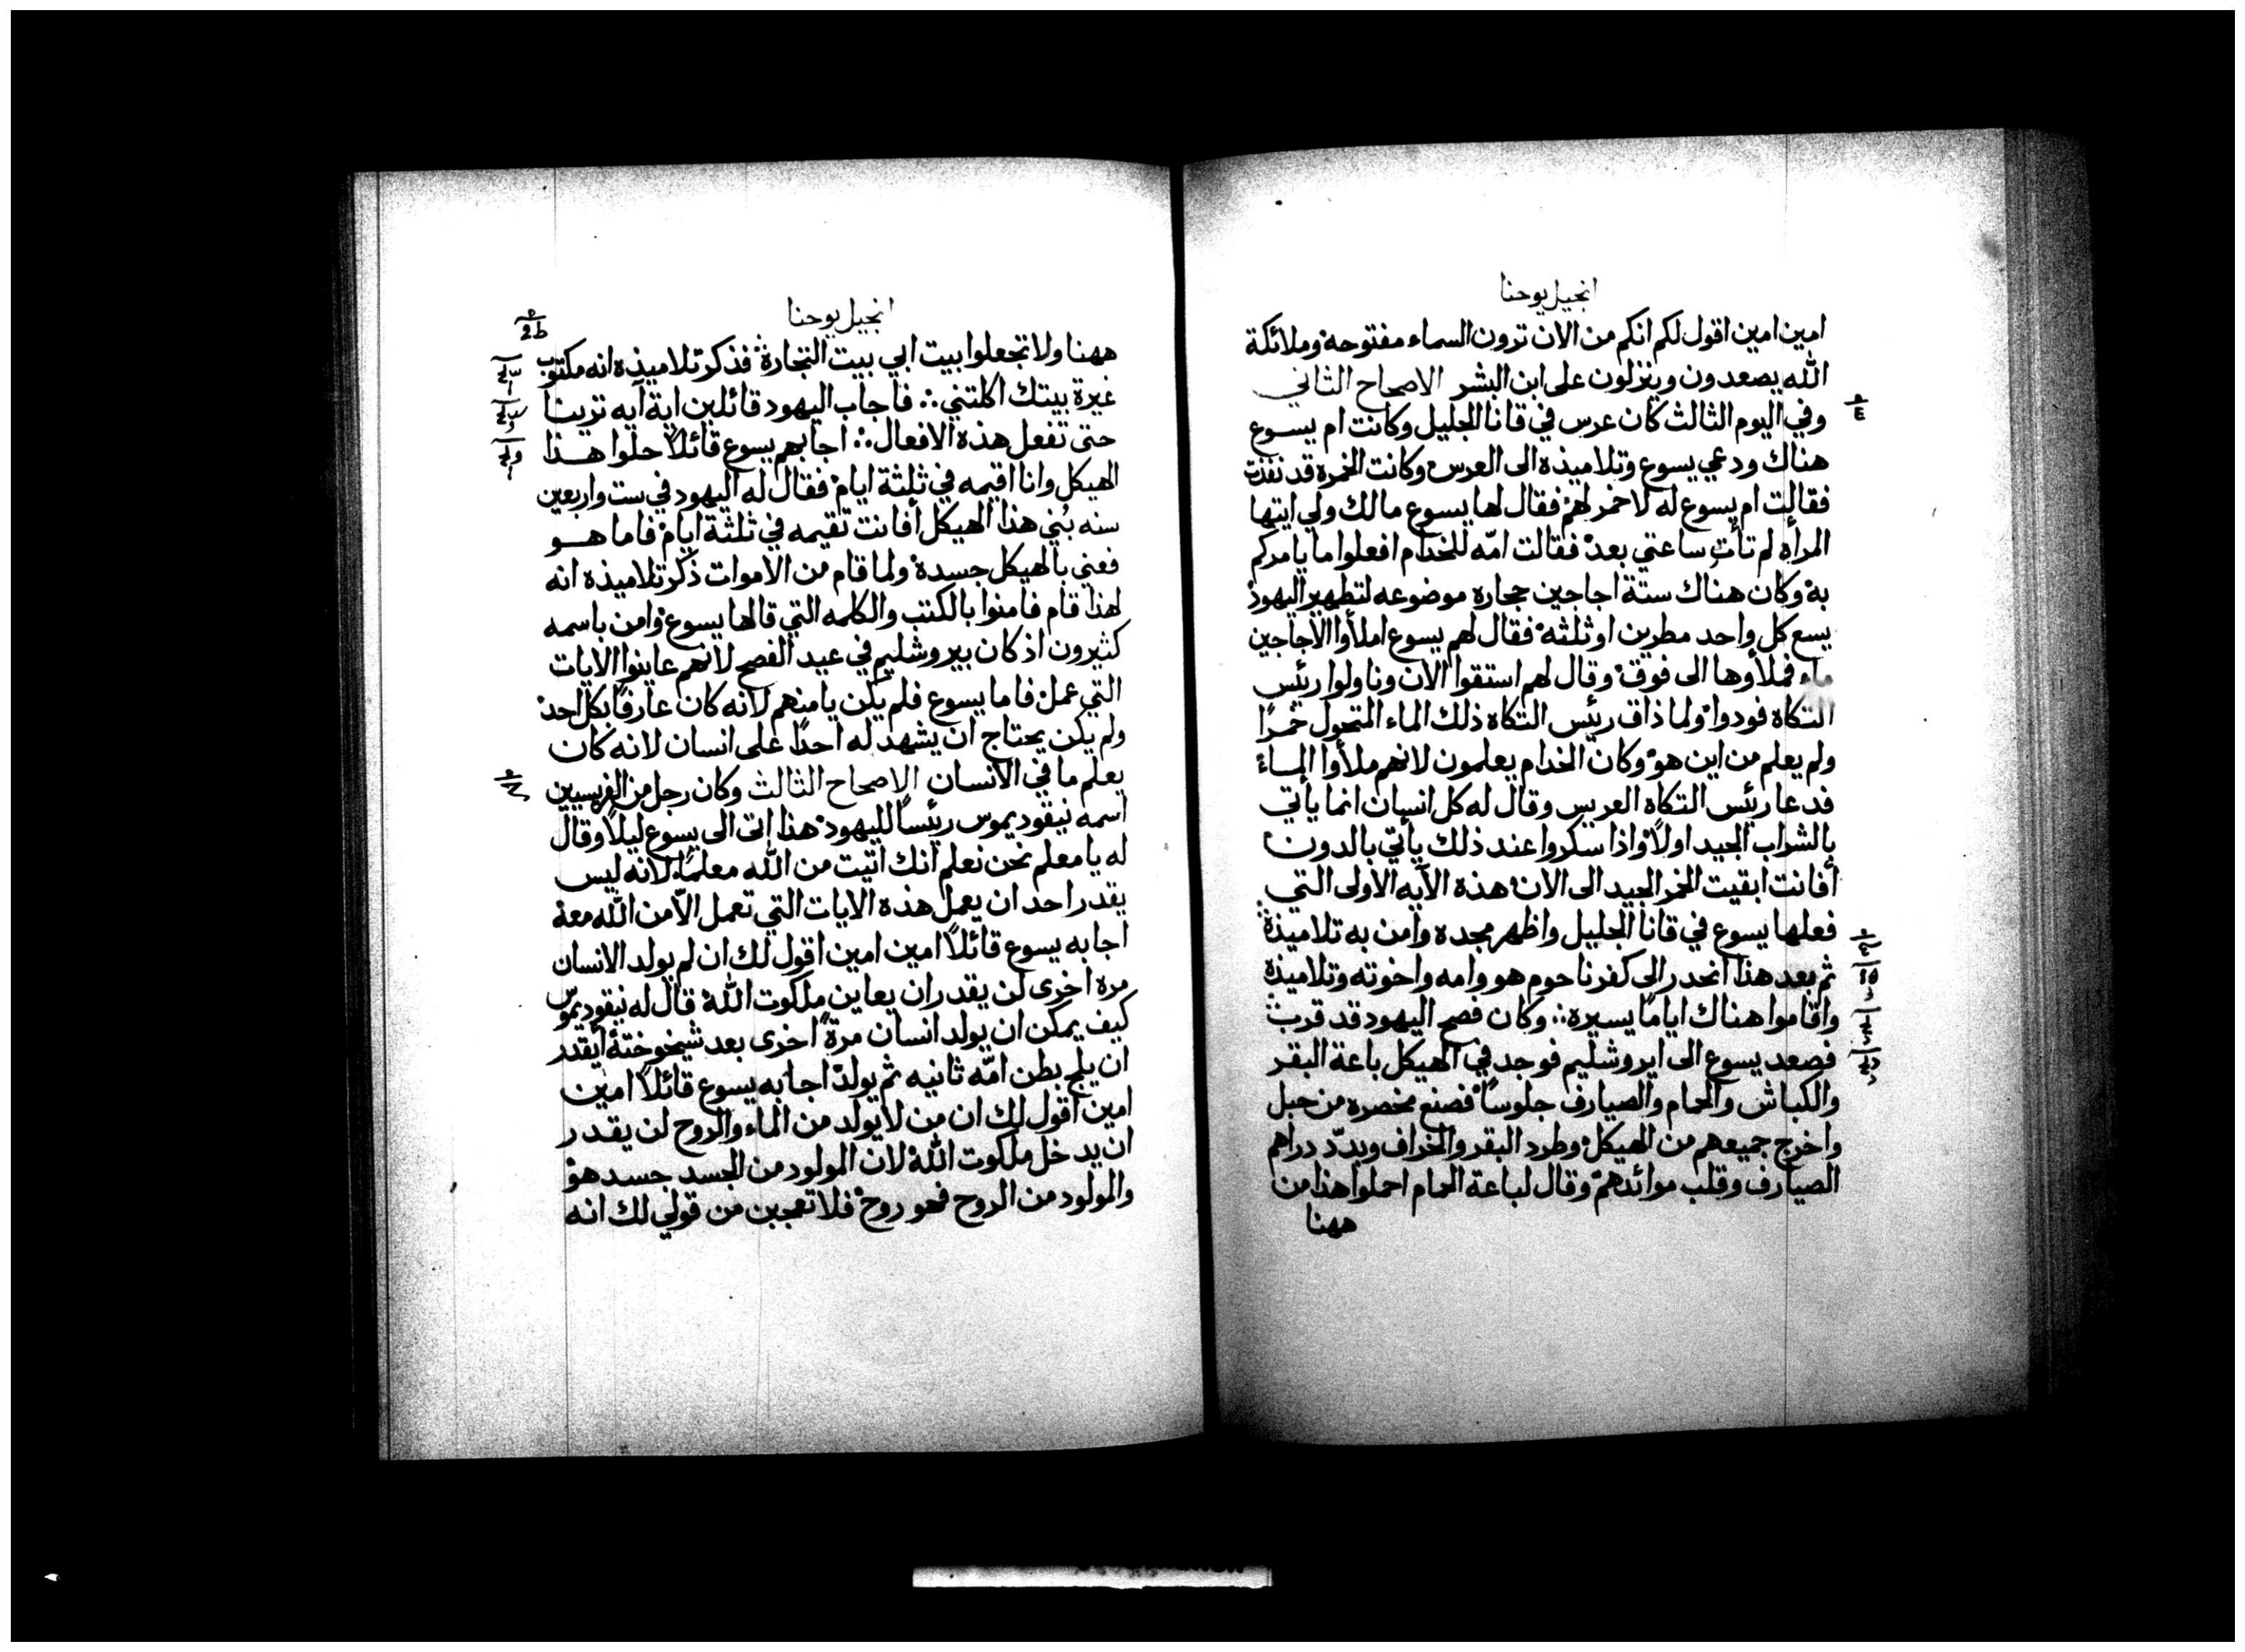 انجيل يوحنا
امين امين اقول لكم انكم من الان ترون السماء مفتوحة وملائكة
الله يصعدون وينزلون على ابن البشر الاصحاح الثاني
وفي اليوم الثالث كان عرس في قانا الجليل وكانت ام يسوع
هناك ودعي يسوع وتلاميذه الى العرس وكانت الخمرة قد نفذت
فقالت ام يسوع له لا خمر لهم فقال لها يسوع مالك ولي ايتها
المرأه لم تأت ساعتي بعد فقالت امّه للخدام افعلوا ما يامركم
به وكان هناك ستة اجاجين حجاره موضوعه لتطهير اليهود
يسع كل واحد مطرين او ثلثه فقال لهم يسوع املأوا الاجاجين
ماء فملأوها الى فوق وقال لهم استقوا الان وناولوا رئيس
التكاة فودوا ولما ذاق رئيس التكاه ذلك الماء المتحول خمرًا
ولم يعلم من اين هو وكان الخدام يعلمون لانهم ملأوا الماء
فدعا رئيس التكاه العريس وقال له كل انسان انما يأتي
بالشراب الجيد اولاً واذا سكروا عند ذلك يأتي بالدون
أفانت ابقيت الخمر الجيد الى الان هذه الآيه الاولى التي
فعلها يسوع في قانا الجليل واظهر مجده وآمن به تلاميذه
ثم بعد هذا انحدر الى كفرناحوم هو وامه واخوته وتلاميذه
واقاموا هناك ايامًا يسيره وكان فصح اليهود قد قرب
فصعد يسوع الى ايروشليم فوجد في الهيكل باعة البقر
والكباش والحمام والصيارف جلوسًا فصنع مخصره من حبل
واخرج جميعهم من الهيكل وطرد البقر والخراف وبدّد دراهم
الصيارف وقلب موائدهم وقال لباعة الحمام احملوا هذا من
ههنا
انجيل يوحنا
ههنا ولا تجعلوا بيت ابي بيت التجارة فذكر تلاميذه انه مكتوب
غيرة بيتك اكلتني فاجاب اليهود قائلين اية آيه ترينا
حتى تفعل هذه الافعال اجابهم يسوع قائلاً حلوا هذا
الهيكل وانا اقيمه في ثلثة ايام فقال له اليهود في ست واربعين
سنه بُني هذا الهيكل أفانت تقيمه في ثلثة ايام فاما هو
فعني بالهيكل جسده ولما قام من الاموات ذكر تلاميذه انه
لهذا قام فامنوا بالكتب والكلمه التي قالها يسوع وامن باسمه
كثيرون اذ كان بيروشليم في عيد الفصح لانهم عاينوا الايات
التي عمل فاما يسوع فلم يكن يامنهم لانه كان عارفًا بكل احد
ولم يكن يحتاج ان يشهد له احدًا على انسان لانه كان
يعلم ما في الانسان الاصحاح الثالث وكان رجل من الفريسيين
اسمه نيقوديموس رئيسًا لليهود هذا اتى الى يسوع ليلاً وقال
له يا معلم نحن نعلم انك اتيت من الله معلمًا لانه ليس
يقدر احد ان يعمل هذه الايات التي تعمل الاّ من الله معه
اجابه يسوع قائلاً امين امين اقول لك ان لم يولد الانسان
مرة اخرى لن يقدر ان يعاين ملكوت الله قال له نيقوديموس
كيف يمكن ان يولد انسان مرةً اخرى بعد شيخوخته أيقدر
ان يلج بطن امّه ثانيه ثم يولد اجابه يسوع قائلاً امين
امين اقول لك ان من لا يولد من الماء والروح لن يقدر
ان يدخل ملكوت الله لان المولود من الجسد جسد هو
والمولود من الروح فهو روح فلا تعجبن من قولي لك انه